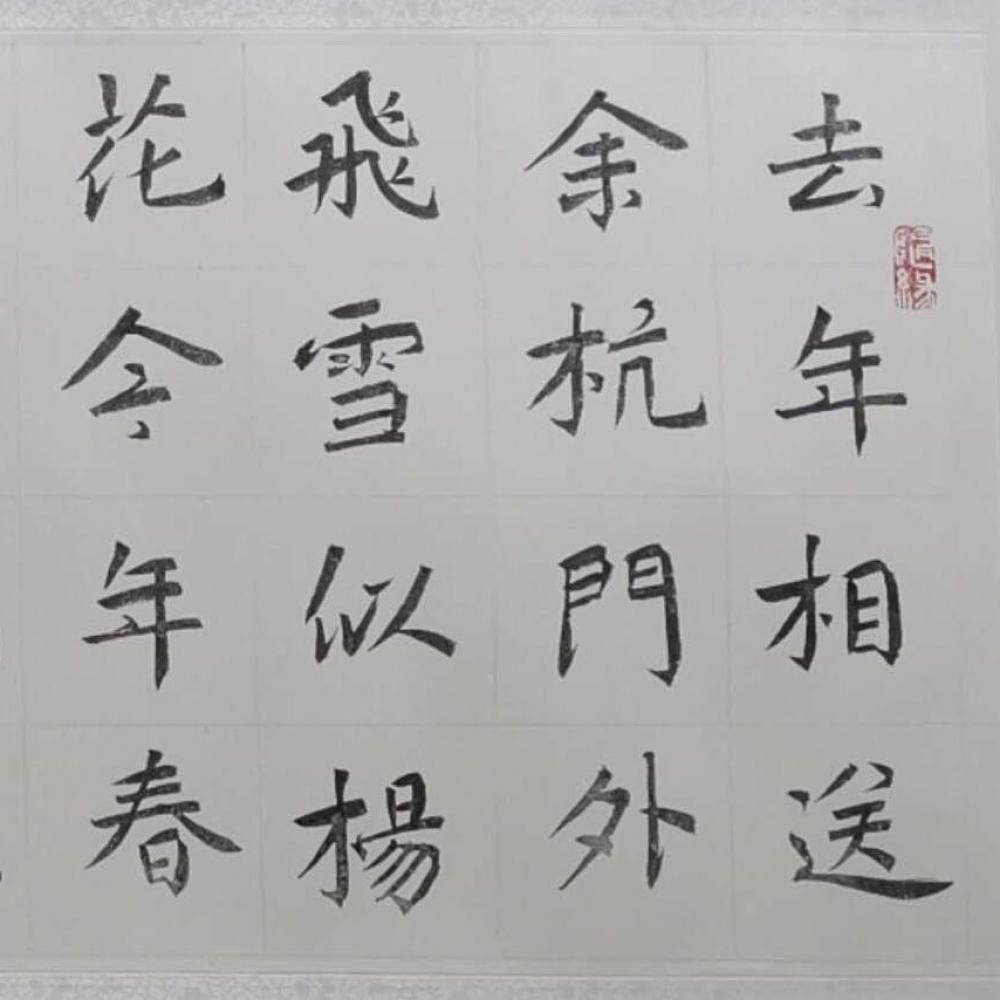 去年相送
余杭門外
飛雪似楊
花今年春